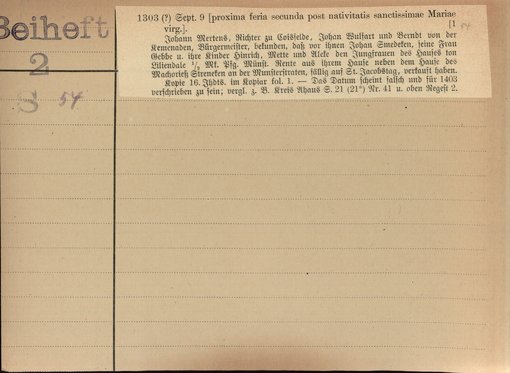 Beiheft
2
S 54
1303 (?) Sept. 9 [proxima feria secunda post nativitatis sanctissimae Mariae
virg.]. [1
Johann Mertens, Richter zu Coisfelde, Johan Wulfart und Berndt von der
Kemenaden, Bürgermeister, bekunden, daß vor ihnen Johan Smedeken, seine Frau
Gebbe u. ihre Kinder Hinrich, Mette und Aleke den Jungfrauen des Hauses von
Liliendale ½ Mk. Pfg. Münst. Rente aus ihrem Hause neben dem Hause des
Machorief Streneken an der Munsterstraten, fällig auf St. Jacobstag, verkauft haben.
Kopie 16. Jhdts. im Kopiar fol. 1. — Das Datum scheint falsch und für 1403
verschrieben zu sein; vergl. z. B. Kreis Ahaus S. 21 (21*) Nr. 41 u. oben Regest 2.